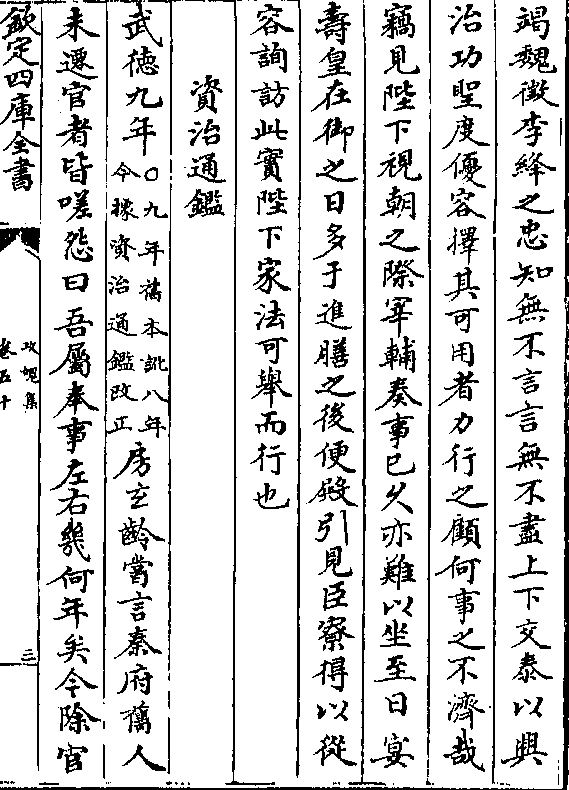 竭魏徵李絳之忠知無不言言無不盡上下交泰以興
治功聖度優容擇其可用者力行之顧何事之不濟哉
竊見陛下視朝之際宰輔奏事已久亦難以坐至日宴
壽皇在御之日多于進膳之後便殿引見臣寮得以從
容詢訪此實陛下家法可舉而行也
資治通鑑
武德九年〇九年舊本訛八年今據資治通鑑改正房玄齡嘗言秦府舊人
未遷官者皆嗟怨曰吾屬奉事左右幾何年矣今除官
欽定四庫全書
攻媿集
卷五十
三